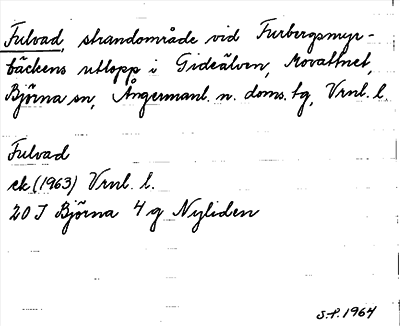 Fulvad, strandområde vid Furbergsmyr-
bäckens utlopp i Gideälven, Movattnet,
Björna sn, Ångermanl. n. doms. tg, Vrnl. l.
Fulvad
ek (1963) Vrnl. l.
20 J Björna 4 g Nyliden
S.P. 1964